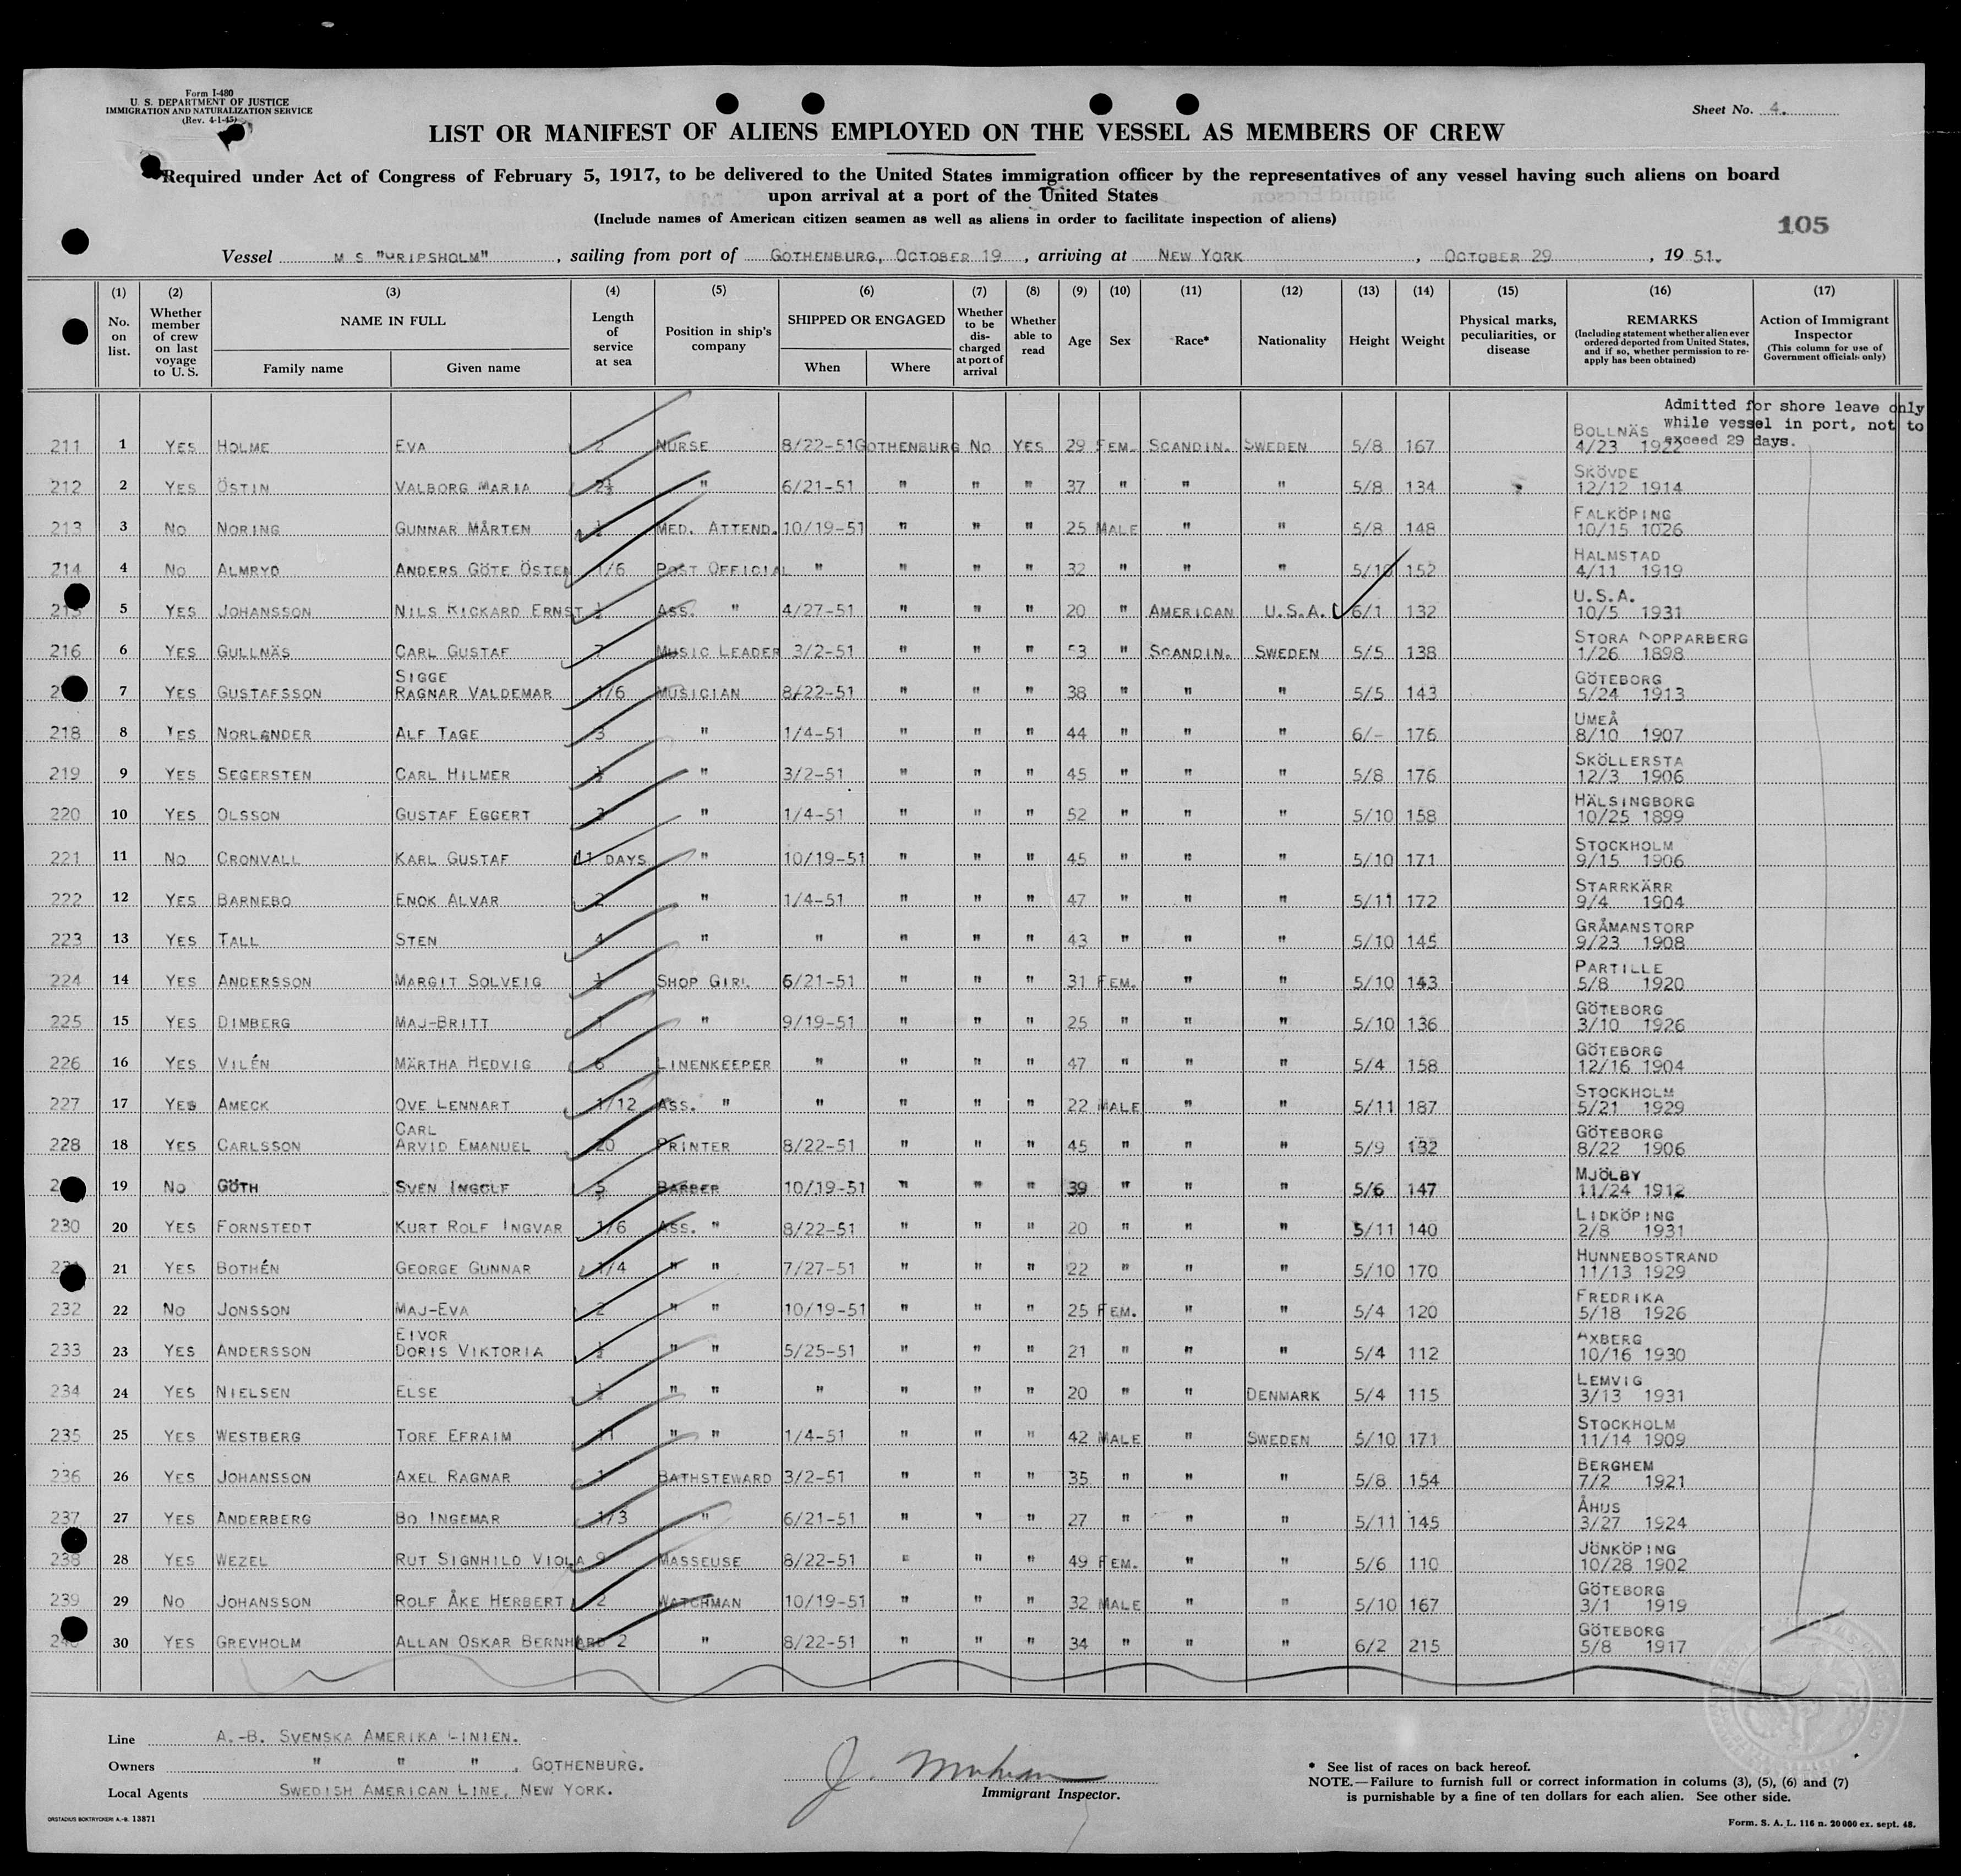 Form I-480
U. S. DEPARTMENT OF JUSTICE
IMMIGRATION AND NATURALIZATION SERVICE
(Rev. 4-1-45)
Sheet No. 4.
LIST OR MANIFEST OF ALIENS EMPLOYED ON THE VESSEL AS MEMBERS OF CREW
Required under Act of Congress of February 5, 1917, to be delivered to the United States immigration officer by the representatives of any vessel having such aliens on board
upon arrival at a port of the United States
(Include names of American citizen seamen as well as aliens in order to facilitate inspection of aliens)
105
Vessel M S "GRIPSHOLM", sailing from port of GOTHENBURG, OCTOBER 19, arriving at NEW YORK, OCTOBER 29, 19 51.
(1) No. on list. (2) Whether member of crew on last voyage to U. S. (3) NAME IN FULL Family name Given name (4) Length of service at sea (5) Position in ship's company (6) SHIPPED OR ENGAGED When Where (7) Whether to be discharged at port of arrival (8) Whether able to read (9) Age (10) Sex (11) Race* (12) Nationality (13) Height (14) Weight (15) Physical marks, peculiarities, or disease (16) REMARKS (Including statement whether alien ever ordered deported from United States, and if so, whether permission to re-apply has been obtained) (17) Action of Immigrant Inspector (This column for use of Government officials only)
Admitted for shore leave only
while vessel in port, not to
exceed 29 days.
211 1 YES HOLME EVA 2 NURSE 8/22-51 GOTHENBURG NO YES 29 FEM. SCANDIN. SWEDEN 5/8 167 BOLLNÄS 4/23 1922
212 2 YES ÖSTIN VALBORG MARIA 2½ " 6/21-51 " " " 37 " " " 5/8 134 SKÖVDE 12/12 1914
213 3 NO NORING GUNNAR MÅRTEN ½ MED. ATTEND. 10/19-51 " " " 25 MALE " " 5/8 148 FALKÖPING 10/15 1026
214 4 NO ALMRYD ANDERS GÖTE ÖSTEN 1/6 POST OFFICIAL " " " " 32 " " " 5/10 152 HALMSTAD 4/11 1919
215 5 YES JOHANSSON NILS RICKARD ERNST ½ ASS. " 4/27-51 " " " 20 " AMERICAN U.S.A. 6/1 132 U.S.A. 10/5 1931
216 6 YES GULLNÄS CARL GUSTAF 7 MUSIC LEADER 3/2-51 " " " 53 " SCANDIN. SWEDEN 5/5 138 STORA KOPPARBERG 1/26 1898
7 YES GUSTAFSSON SIGGE RAGNAR VALDEMAR 1/6 MUSICIAN 8/22-51 " " " 38 " " " 5/5 143 GÖTEBORG 5/24 1913
218 8 YES NORLANDER ALF TAGE 3 " 1/4-51 " " " 44 " " " 6/- 176 UMEÅ 8/10 1907
219 9 YES SEGERSTEN CARL HILMER ½ " 3/2-51 " " " 45 " " " 5/8 176 SKÖLLERSTA 12/3 1906
220 10 YES OLSSON GUSTAF EGGERT " 1/4-51 " " " 52 " " " 5/10 158 HÄLSINGBORG 10/25 1899
221 11 NO CRONVALL KARL GUSTAF 11 DAYS " 10/19-51 " " " 45 " " " 5/10 171 STOCKHOLM 9/15 1906
222 12 YES BARNEBO ENOK ALVAR 2 " 1/4-51 " " " 47 " " " 5/11 172 STARRKÄRR 9/4 1904
223 13 YES TALL STEN 4 " " " " " 43 " " " 5/10 145 GRÅMANSTORP 9/23 1908
224 14 YES ANDERSSON MARGIT SOLVEIG ½ SHOP GIRL 6/21-51 " " " 31 FEM. " " 5/10 143 PARTILLE 5/8 1920
225 15 YES DIMBERG MAJ-BRITT 1 " 9/19-51 " " " 25 " " " 5/10 136 GÖTEBORG 3/10 1926
226 16 YES VILÉN MÄRTHA HEDVIG 6 LINENKEEPER " " " " 47 " " " 5/4 158 GÖTEBORG 12/16 1904
227 17 YES AMECK OVE LENNART 1/12 ASS. " " " " " 22 MALE " " 5/11 187 STOCKHOLM 5/21 1929
228 18 YES CARLSSON CARL ARVID EMANUEL 20 PRINTER 8/22-51 " " " 45 " " " 5/9 132 GÖTEBORG 8/22 1906
19 NO GÖTH SVEN INGOLF 5 BARBER 10/19-51 " " " 39 " " " 5/6 147 MJÖLBY 11/24 1912
230 20 YES FORNSTEDT KURT ROLF INGVAR 1/6 ASS. " 8/22-51 " " " 20 " " " 5/11 140 LIDKÖPING 2/8 1931
21 YES BOTHÉN GEORGE GUNNAR 1/4 " " 7/27-51 " " " 22 " " " 5/10 170 HUNNEBOSTRAND 11/13 1929
232 22 NO JONSSON MAJ-EVA 2 " " 10/19-51 " " " 25 FEM. " " 5/4 120 FREDRIKA 5/18 1926
233 23 YES ANDERSSON EIVOR DORIS VIKTORIA ½ " " 5/25-51 " " " 21 " " " 5/4 112 AXBERG 10/16 1930
234 24 YES NIELSEN ELSE ½ " " " " " " 20 " " DENMARK 5/4 115 LEMVIG 3/13 1931
235 25 YES WESTBERG TORE EFRAIM 11 " " 1/4-51 " " " 42 MALE " SWEDEN 5/10 171 STOCKHOLM 11/14 1909
236 26 YES JOHANSSON AXEL RAGNAR 1 BATHSTEWARD 3/2-51 " " " 35 " " " 5/8 154 BERGHEM 7/2 1921
237 27 YES ANDERBERG BO INGEMAR 1/3 " 6/21-51 " " " 27 " " " 5/11 145 ÅHUS 3/27 1924
238 28 YES WEZEL RUT SIGNHILD VIOLA 9 MASSEUSE 8/22-51 " " " 49 FEM. " " 5/6 110 JÖNKÖPING 10/28 1902
239 29 NO JOHANSSON ROLF ÅKE HERBERT 2 WATCHMAN 10/19-51 " " " 32 MALE " " 5/10 167 GÖTEBORG 3/1 1919
240 30 YES GREVHOLM ALLAN OSKAR BERNHARD 2 " 8/22-51 " " " 34 " " " 6/2 215 GÖTEBORG 5/8 1917
Line A.-B. SVENSKA AMERIKA LINIEN.
Owners " " ", GOTHENBURG.
Local Agents SWEDISH AMERICAN LINE, NEW YORK.
J.
Immigrant Inspector.
* See list of races on back hereof.
NOTE.—Failure to furnish full or correct information in colums (3), (5), (6) and (7)
is purnishable by a fine of ten dollars for each alien. See other side.
ORSTADIUS BOKTRYCKERI A.-B. 13871
Form. S. A. L. 116 n. 20000 ex. sept. 48.